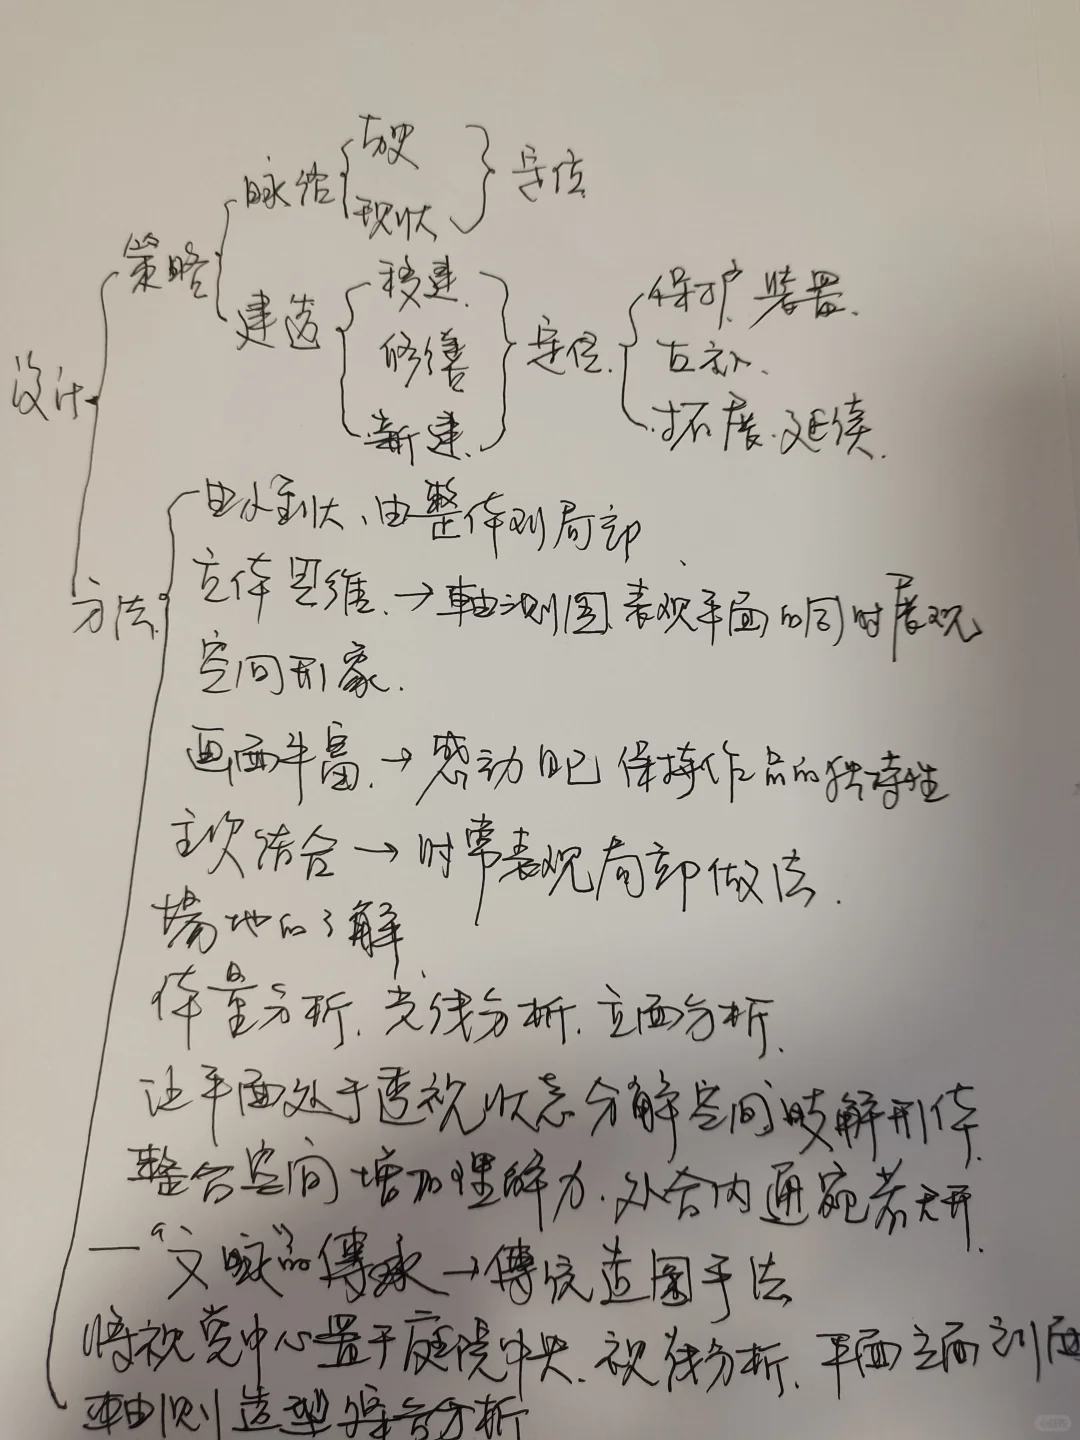 设计
策略
脉络
历史
现状
定位
建造
移建
修缮
新建
定位
保护 装置
互补
拓展、延续
方法
由小到大、由整体到局部
立体思维 → 軸测图 表观平面的同时展观
空间形象
画面丰富 → 感动自己 保持作品的独特性
主次结合 → 时常表观局部做法
場地的了解
体量分析、光线分析、立面分析
让平面处于透视状态 分解空间 肢解形体
整合空间 增加理解力、外合内通 宛若天开
—“文脉”的傳承 → 傳统造園手法
将视觉中心置于庭院中央、视线分析、平面立面剖面
軸测造型综合分析